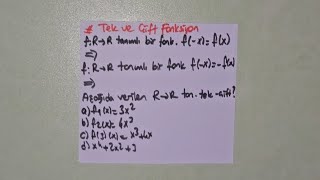 # Tek ve Çift Fonksiyon
f:R→R tanımlı bir fonk. f(-x)=f(x)
⇒
f:R→R tanımlı bir fonk f(-x)=-f(x)
⇒
Aşağıda verilen R→R tan. tek-çift?
a) f₁(x)=3x²
b) f₂(x)=4x³
c) f(3)(x)=x³+4x
d) x⁴+2x²+3